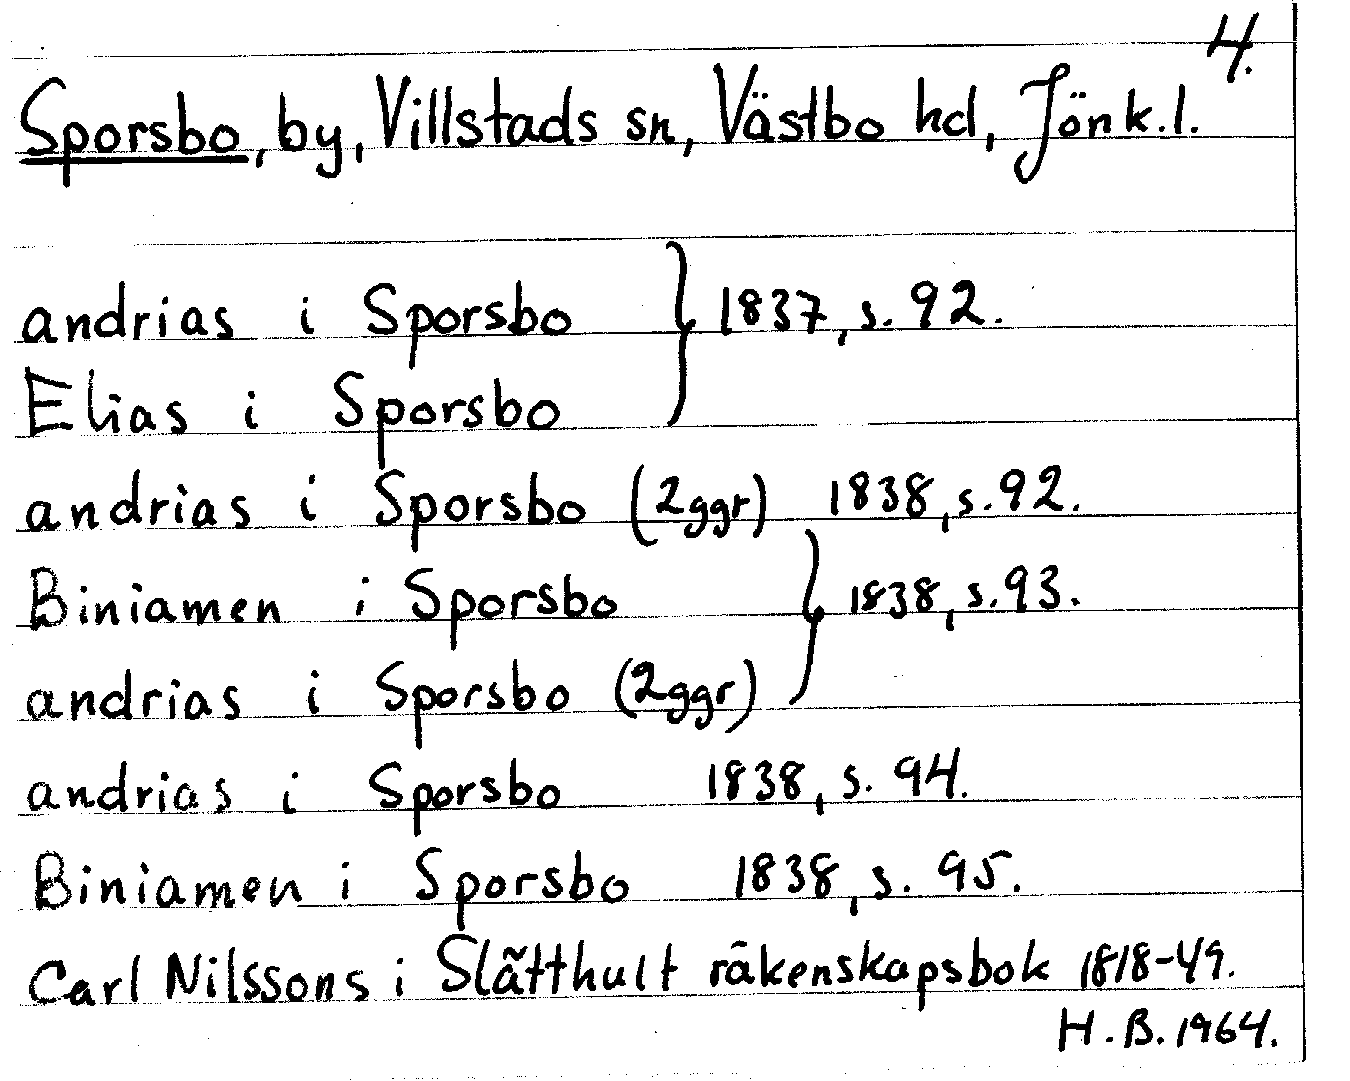 4.
Sporsbo, by, Villstads sn, Västbo hd, Jönk.l.
andrias i Sporsbo } 1837, s. 92.
Elias i Sporsbo
andrias i Sporsbo (2ggr) 1838, s. 92.
Biniamen i Sporsbo } 1838, s. 93.
andrias i Sporsbo (2ggr)
andrias i Sporsbo 1838, s. 94.
Biniamen i Sporsbo 1838, s. 95.
Carl Nilssons i Slätthult räkenskapsbok 1818-49.
H.B. 1964.